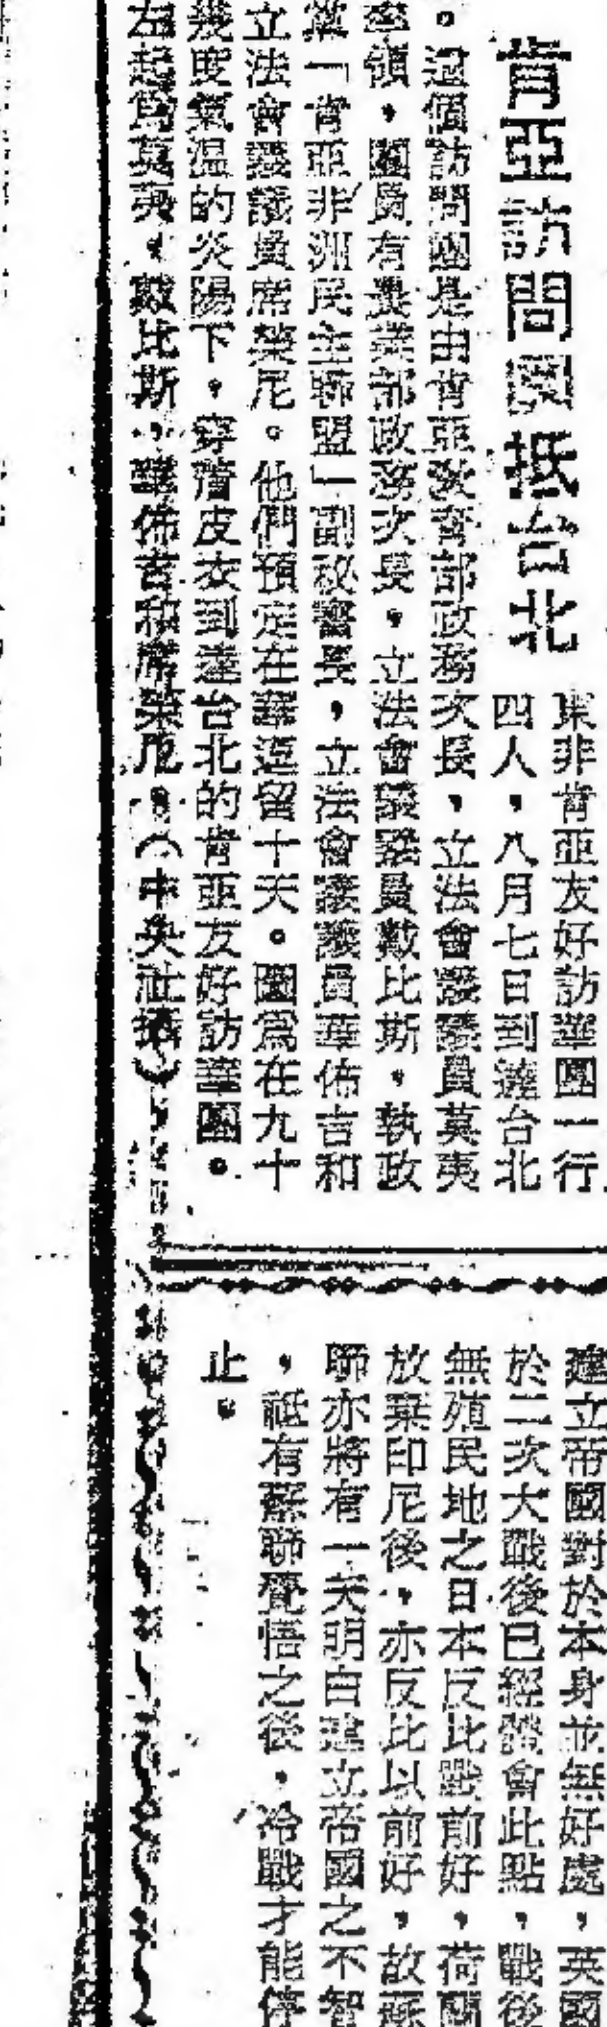 肯亞訪問團抵台北
東非肯亞友好訪華團一行
四人，八月七日到達台北
。這個訪問團是由肯亞教育部政務次長，立法會議議員莫夷
率領，團員有農業部政務次長，立法會議議員戴比斯，執政
黨「肯亞非洲民主聯盟」副秘書長，立法會議議員華佈吉和
立法會議議員席榮尼。他們預定在華逗留十天。圖爲在九十
幾度氣温的炎陽下，穿着皮衣到達台北的肯亞友好訪華團。
左起爲莫夷，戴比斯，華佈吉和席榮尼。（中央社攝）
建立帝國對於本身並無好處，英國
於二次大戰後已經體會此點，戰後
無殖民地之日本反比戰前好，荷蘭
放棄印尼後，亦反比以前好，故蘇
聯亦將有一天明白建立帝國之不智
，祗有蘇聯覺悟之後，冷戰才能停
止。